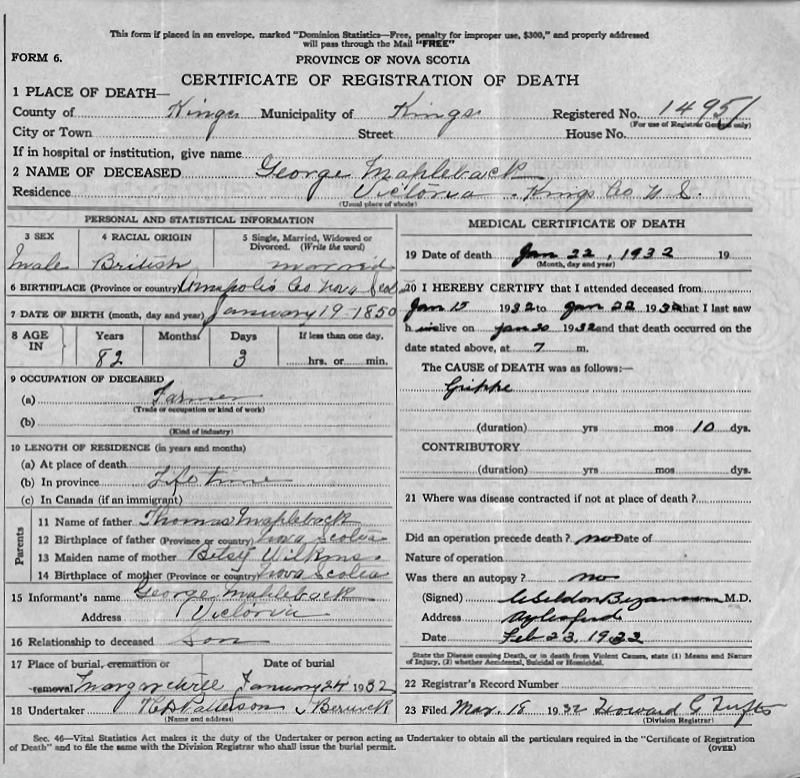 This form if placed in an envelope, marked "Dominion Statistics—Free, penalty for improper use, $300," and properly addressed
will pass through the Mail "FREE"
FORM 6.
PROVINCE OF NOVA SCOTIA
CERTIFICATE OF REGISTRATION OF DEATH
1 PLACE OF DEATH—
County of Kings Municipality of Kings Registered No. 1495
(For use of Registrar General only)
City or Town Street House No.
If in hospital or institution, give name
2 NAME OF DECEASED George Mapleback
Residence Victoria . Kings Co N S.
(Usual place of abode)
PERSONAL AND STATISTICAL INFORMATION
3 SEX 4 RACIAL ORIGIN 5 Single, Married, Widowed or
Divorced. (Write the word)
Male British married
6 BIRTHPLACE (Province or country) Annapolis Co Nova Scotia
7 DATE OF BIRTH (month, day and year) January 19-1850
8 AGE IN Years Months Days If less than one day,
82 3 hrs. or min.
9 OCCUPATION OF DECEASED
(a) Farmer
(Trade or occupation or kind of work)
(b)
(Kind of industry)
10 LENGTH OF RESIDENCE (in years and months)
(a) At place of death
(b) In province Life time
(c) In Canada (if an immigrant)
Parents
11 Name of father Thomas Mapleback
12 Birthplace of father (Province or country) Nova Scotia
13 Maiden name of mother Betsy Wilkins.
14 Birthplace of mother (Province or country) Nova Scotia
15 Informant's name George Mapleback
Address Victoria
16 Relationship to deceased Son
17 Place of burial, cremation or Date of burial
removal Margaretville January 24 1932
18 Undertaker Patterson Berwick
(Name and address)
MEDICAL CERTIFICATE OF DEATH
19 Date of death Jan 22, 1932 19
(Month, day and year)
20 I HEREBY CERTIFY that I attended deceased from
Jan 15 1932 to Jan 22 1932 that I last saw
h im alive on Jan 20 1932 and that death occurred on the
date stated above, at 7 m.
The CAUSE of DEATH was as follows:—
Grippe
(duration) yrs mos 10 dys.
CONTRIBUTORY
(duration) yrs mos dys.
21 Where was disease contracted if not at place of death?
Did an operation precede death? no Date of
Nature of operation
Was there an autopsy? no
(Signed) M.D.
Address Aylesford
Date Feb 23, 1932
State the Disease causing Death, or in death from Violent Causes, state (1) Means and Nature
of Injury, (2) whether Accidental, Suicidal or Homicidal.
22 Registrar's Record Number
23 Filed Mar. 18 1932 Howard C Tufts
(Division Registrar)
Sec. 46—Vital Statistics Act makes it the duty of the Undertaker or person acting as Undertaker to obtain all the particulars required in the "Certificate of Registration
of Death" and to file the same with the Division Registrar who shall issue the burial permit. (OVER)